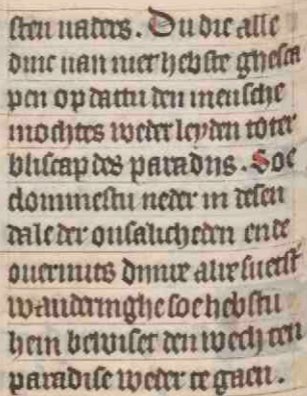 sten vaders. Du die alle
dinc van niet hebste ghesca
pen op dattu den mensche
mochtes weder leyden toter
bliscap des paradijs. Soe
clommestu neder in desen
dale der onsalicheden ende
ouermits dynre alre suetst
wanderinghe soe hebstu
hem bewiset den wech ten
paradise weder te gaen.